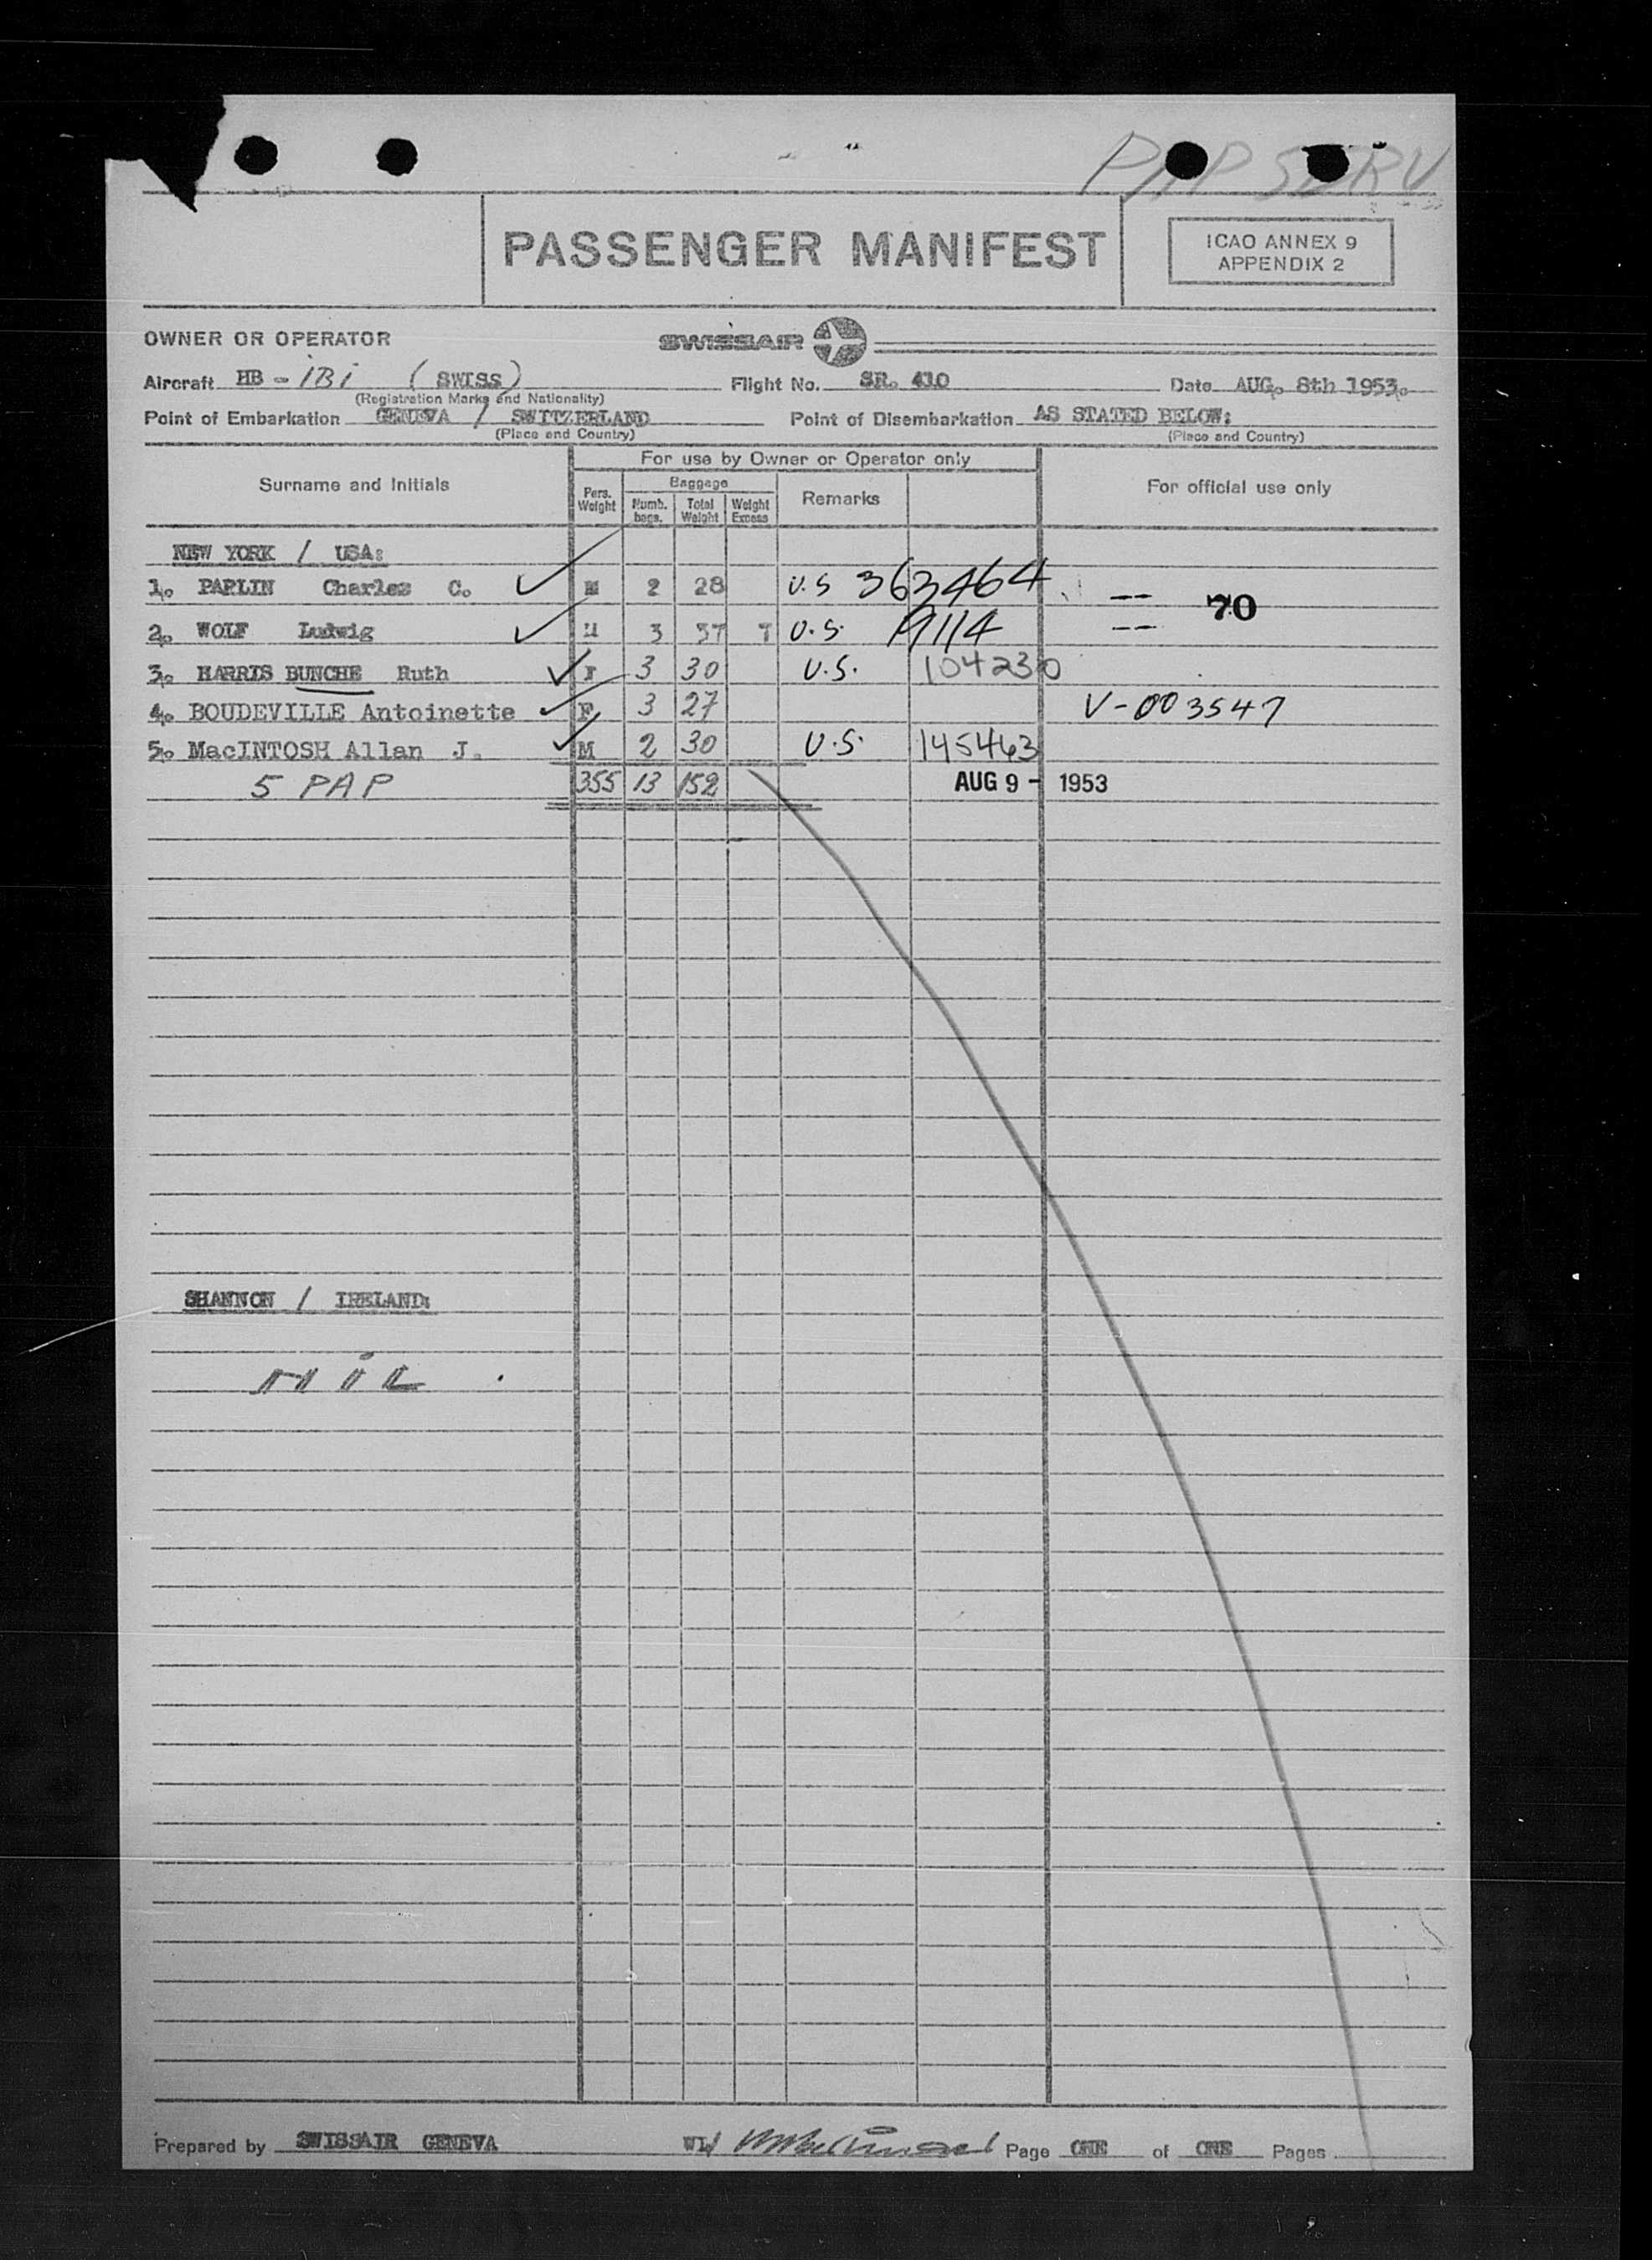 PAP SERV
PASSENGER MANIFEST
ICAO ANNEX 9
APPENDIX 2
OWNER OR OPERATOR
SWISSAIR
Aircraft HB - iBi (SWISS) Flight No. SR. 410 Date AUG. 8th 1953.
(Registration Marks and Nationality)
Point of Embarkation GENEVA / SWITZERLAND Point of Disembarkation AS STATED BELOW:
(Place and Country) (Place and Country)
For use by Owner or Operator only
Surname and Initials Pers. Weight Baggage Numb. bags. Total Weight Weight Excess Remarks For official use only
NEW YORK / USA:
1. PARLIN Charles C. M 2 28 U.S 363464
70
2. WOLF Ludwig M 3 37 7 U.S. 19114
3. HARRIS BUNCHE Ruth F 3 30 U.S. 104230
4. BOUDEVILLE Antoinette F 3 27 V-003547
5. MacINTOSH Allan J. M 2 30 U.S. 145463
5 PAP 355 13 152 AUG 9 - 1953
SHANNON / IRELAND:
NiL .
Prepared by SWISSAIR GENEVA WL/ Page ONE of ONE Pages